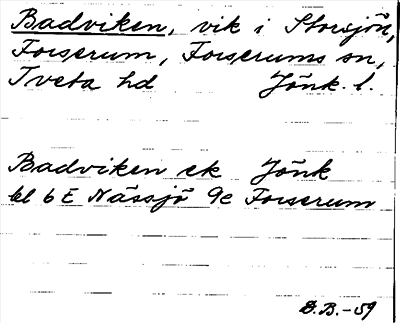 Badviken, vik i Storsjön,
Forserum, Forserums sn,
Tveta hd Jönk. l.
Badviken ek Jönk
bl 6E Nässjö 9e Forserum
D.B.-59